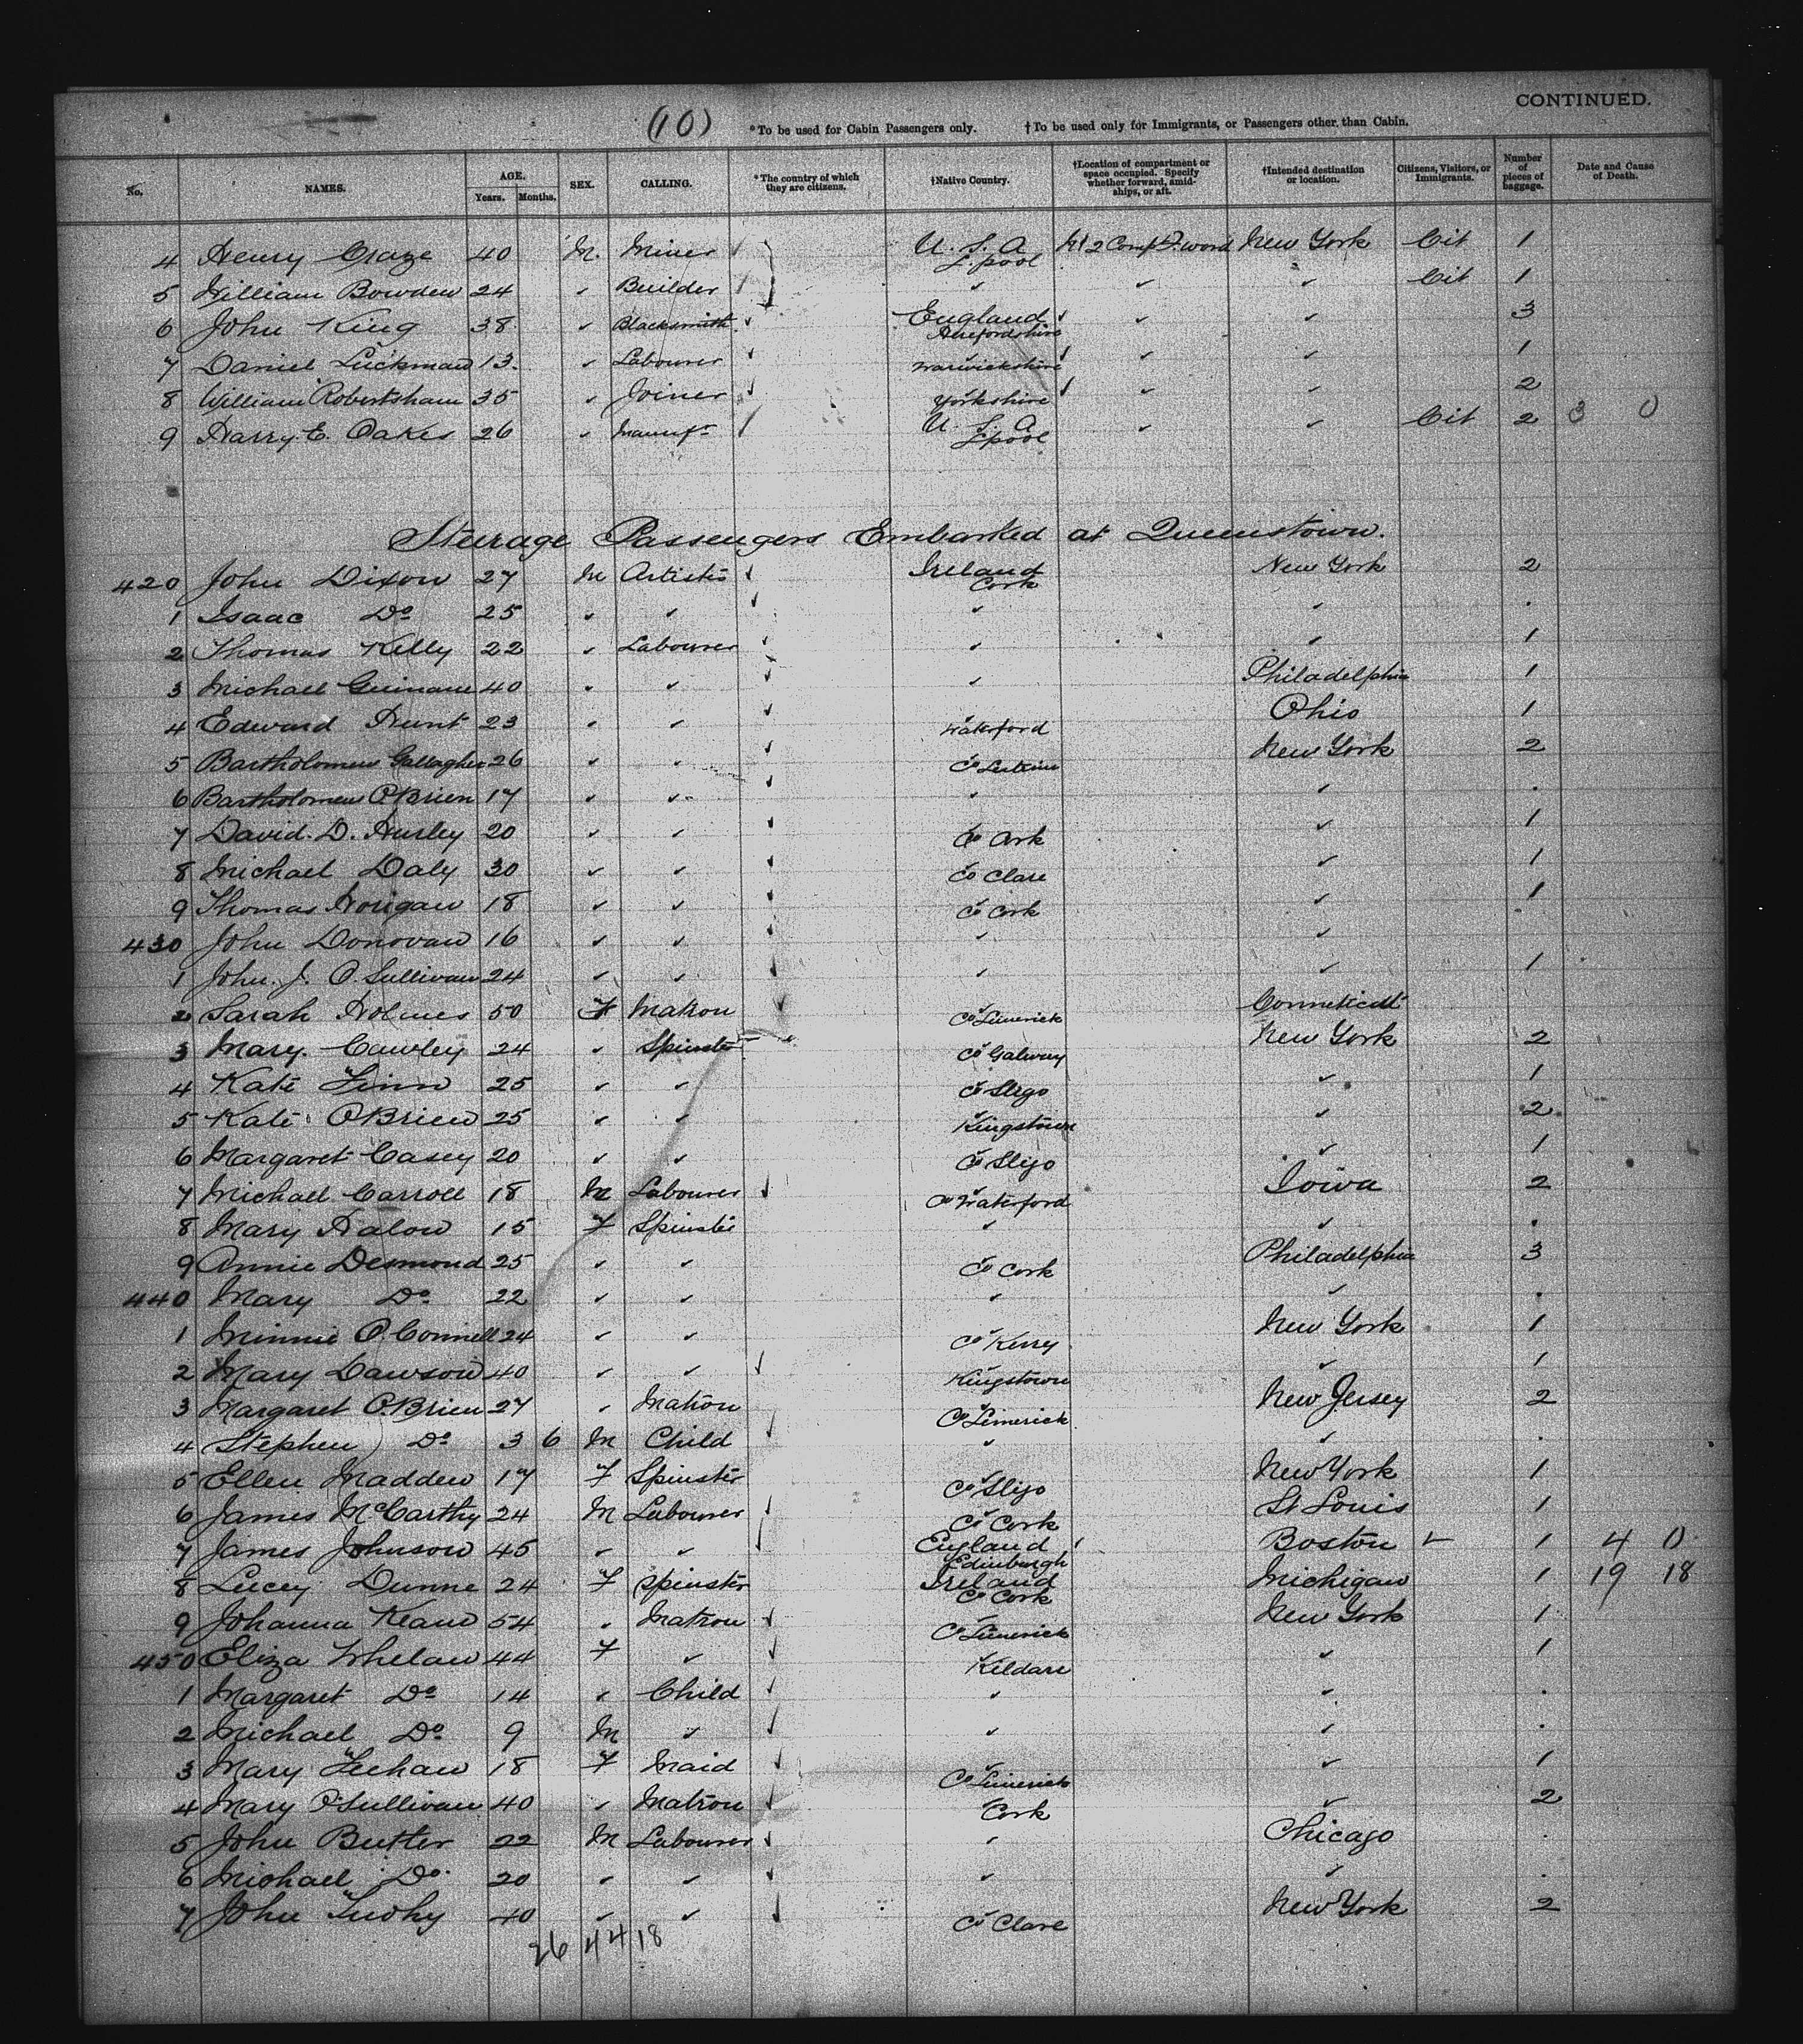 (10)
*To be used for Cabin Passengers only. †To be used only for Immigrants, or Passengers other than Cabin. CONTINUED.
No. NAMES. AGE. Years. Months. SEX. CALLING. *The country of which they are citizens. †Native Country. †Location of compartment or space occupied. Specify whether forward, amidships, or aft. †Intended destination or location. Citizens, Visitors, or Immigrants. Number of pieces of baggage. Date and Cause of Death.
4 Henry Craze 40 M. Miner U. S. A L.pool 2 Compt F.word New York Cit 1
5 William Bowden 24 " Builder " " " Cit 1
6 John King 38 " Blacksmith England Herefordshire " " 3
7 Daniel Luckman 13 " Labourer Warwickshire " " 1
8 William Robertsham 35 " Joiner Yorkshire " " 2
9 Harry. E. Oakes 26 " Manufr U. S. A Lpool " " Cit 2 3 0
Steerage Passengers Embarked at Queenstown.
420 John Dixon 27 M Artiste Ireland Cork New York 2
1 Isaac Do 25 " " " " .
2 Thomas Kelly 22 " Labourer " " 1
3 Michael Guinane 40 " " " Philadelphia 1
4 Edward Hunt 23 " " Waterford Ohio 1
5 Bartholomew Gallagher 26 " " Co Leitrim New York 2
6 Bartholomew O'Brien 17 " " " " .
7 David. D. Hurley 20 " " Co Cork " 1
8 Michael Daly 30 " " Co Clare " 1
9 Thomas Horigan 18 " " Co Cork " 1
430 John Donovan 16 " " " "
1 John. J. O.Sullivan 24 " " " " 1
2 Sarah Holmes 50 F Matron Co Limerick Conneticut
3 Mary. Cawley 24 " Spinster Co Galway New York 2
4 Kate Finn 25 " " Co Sligo " 1
5 Kate O'Brien 25 " " Kingstown " 2
6 Margaret Casey 20 " " Co Sligo " 1
7 Michael Carroll 18 M Labourer Co Waterford Iowa 2
8 Mary Halow 15 F Spinster " " .
9 Annie Desmond 25 " " Co Cork Philadelphia 3
440 Mary Do 22 " " " " .
1 Minnie O.Connell 24 " " Co Kerry New York 1
2 Mary Dawson 40 " " Kingstown " 1
3 Margaret O.Brien 27 " Matron Co Limerick New Jersey 2
4 Stephen Do 3 6 M Child " " .
5 Ellen Madden 17 F Spinster Co Sligo New York 1
6 James McCarthy 24 M Labourer Co Cork St Louis 1
7 James Johnson 45 " " England Edinburgh Boston 1 4 0
8 Lucey Dunne 24 F Spinster Ireland Co Cork Michigan 1 19 18
9 Johanna Keane 54 " Matron Co Limerick New York 1
450 Eliza Whelan 44 F " Kildare " 1
1 Margaret Do 14 " Child " " .
2 Michael Do 9 M " " " .
3 Mary Leehan 18 F Maid Co Limerick " 1
4 Mary O'Sullivan 40 " Matron Cork " 2
5 John Butler 22 M Labourer " Chicago .
6 Michael Do 20 " " " " .
7 John Tuohy 40 " " Co Clare New York 2
26 44 18